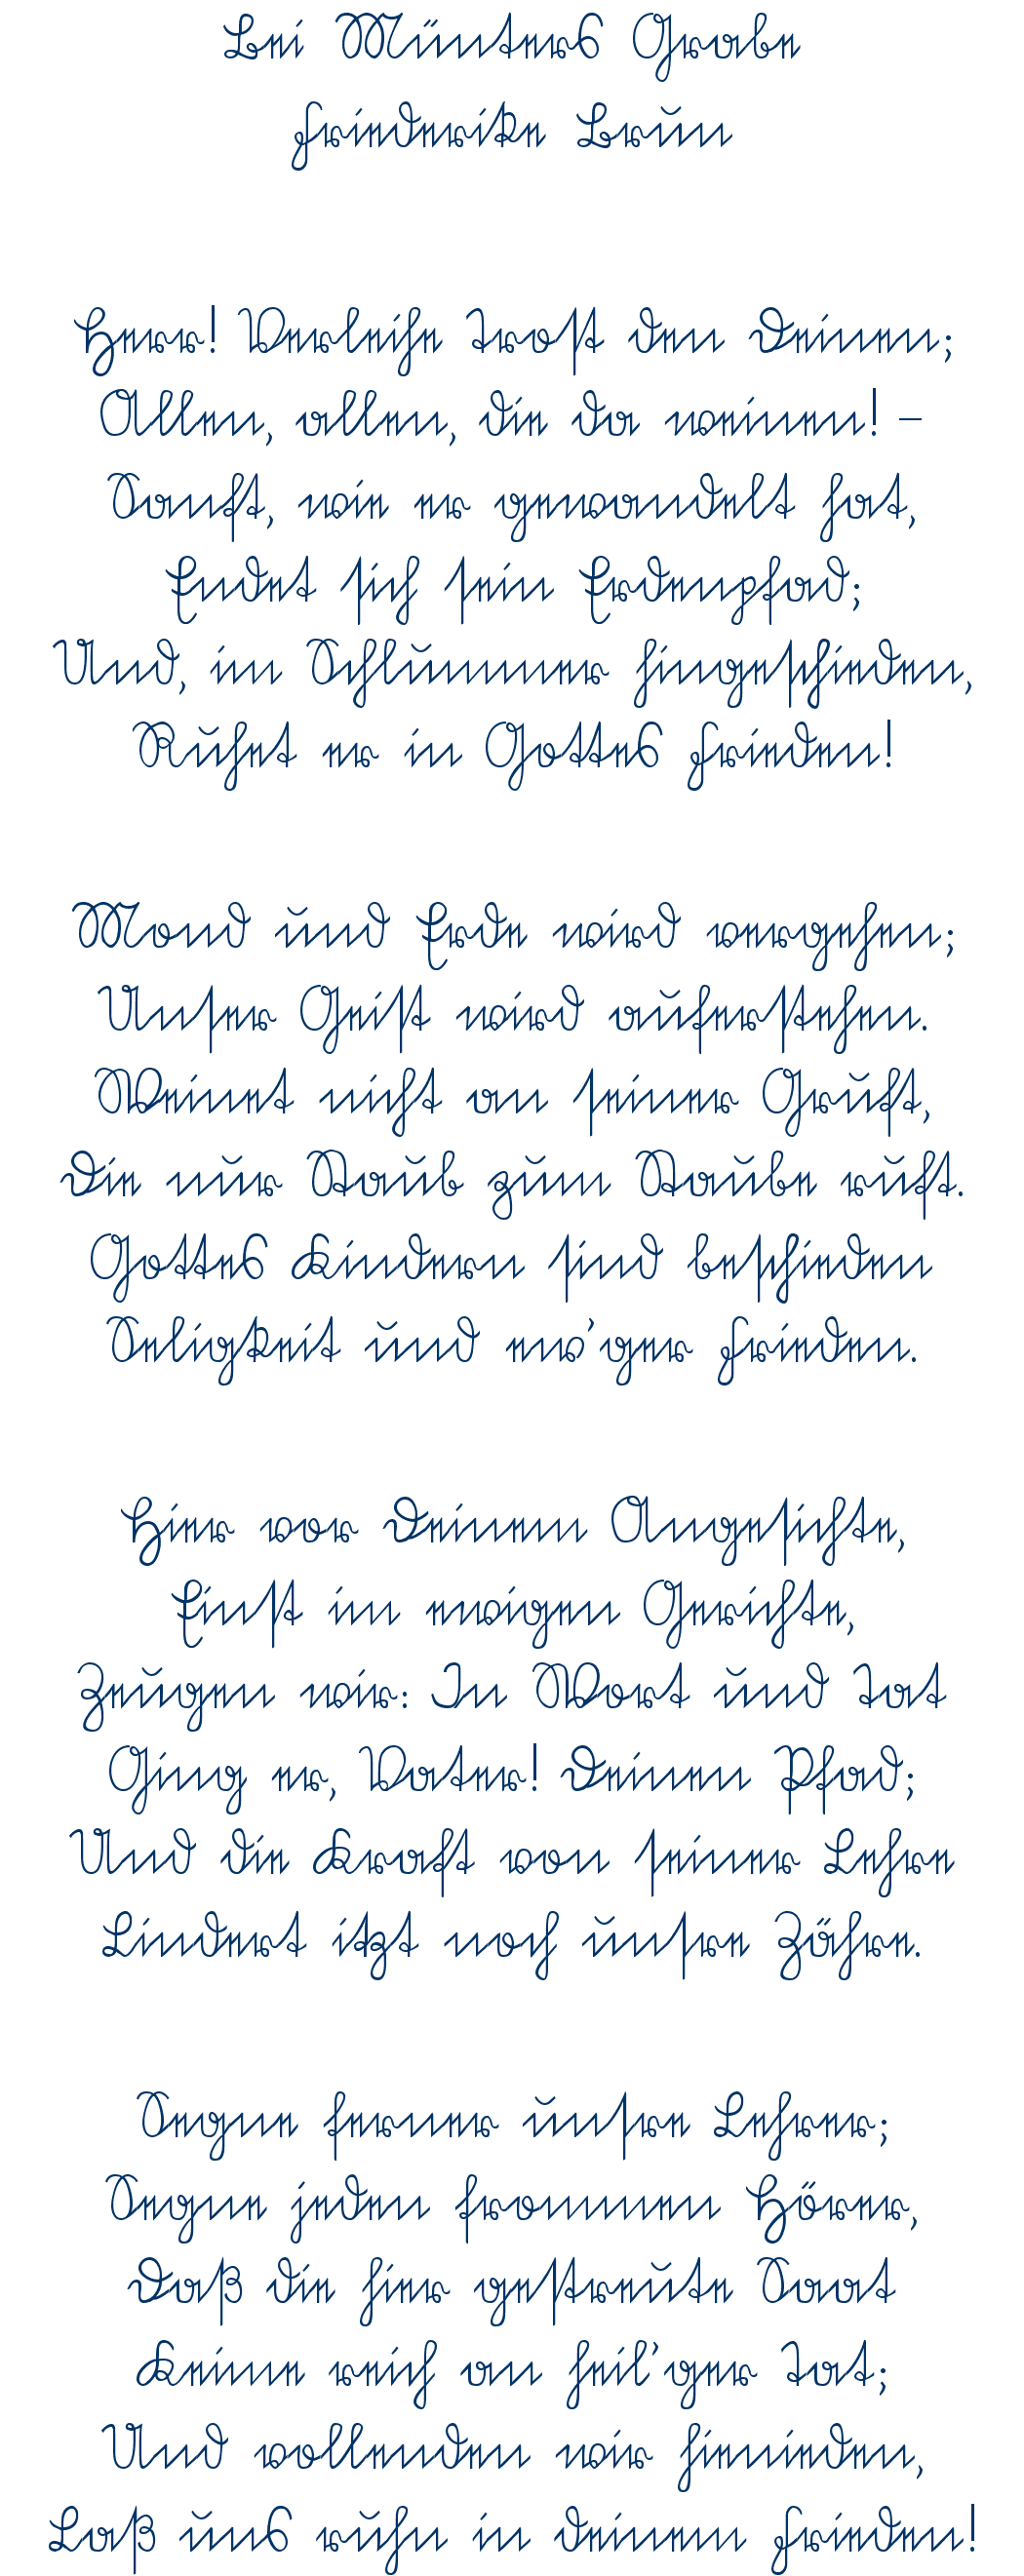 Bei Münters Grabe
Friederike Brun
Herr! Verleihe Trost den Deinen;
Allen, allen, die da weinen! –
Sanft, wie er gewandelt hat,
Endet sich sein Erdenpfad;
Und, im Schlummer hingeschieden,
Ruhet er in Gottes Frieden!
Mond und Erde wird vergehen;
Unser Geist wird auferstehen.
Weinet nicht an seiner Gruft,
Die nur Staub zum Staube ruft.
Gottes Kindern sind beschieden
Seligkeit und ew'ger Frieden.
Hier vor Deinem Angesichte,
Einst im ewigen Gerichte,
Zeugen wir: In Wort und Tat
Ging er, Vater! Deinen Pfad;
Und die Kraft von seiner Lehre
Lindert itzt noch unsre Zähre.
Segne ferner unsre Lehrer;
Segne jeden frommen Hörer,
Daß die hier gestreute Saat
Keime reich an heil'ger Tat;
Und vollenden wir hienieden,
Laß uns ruhn in deinem Frieden!